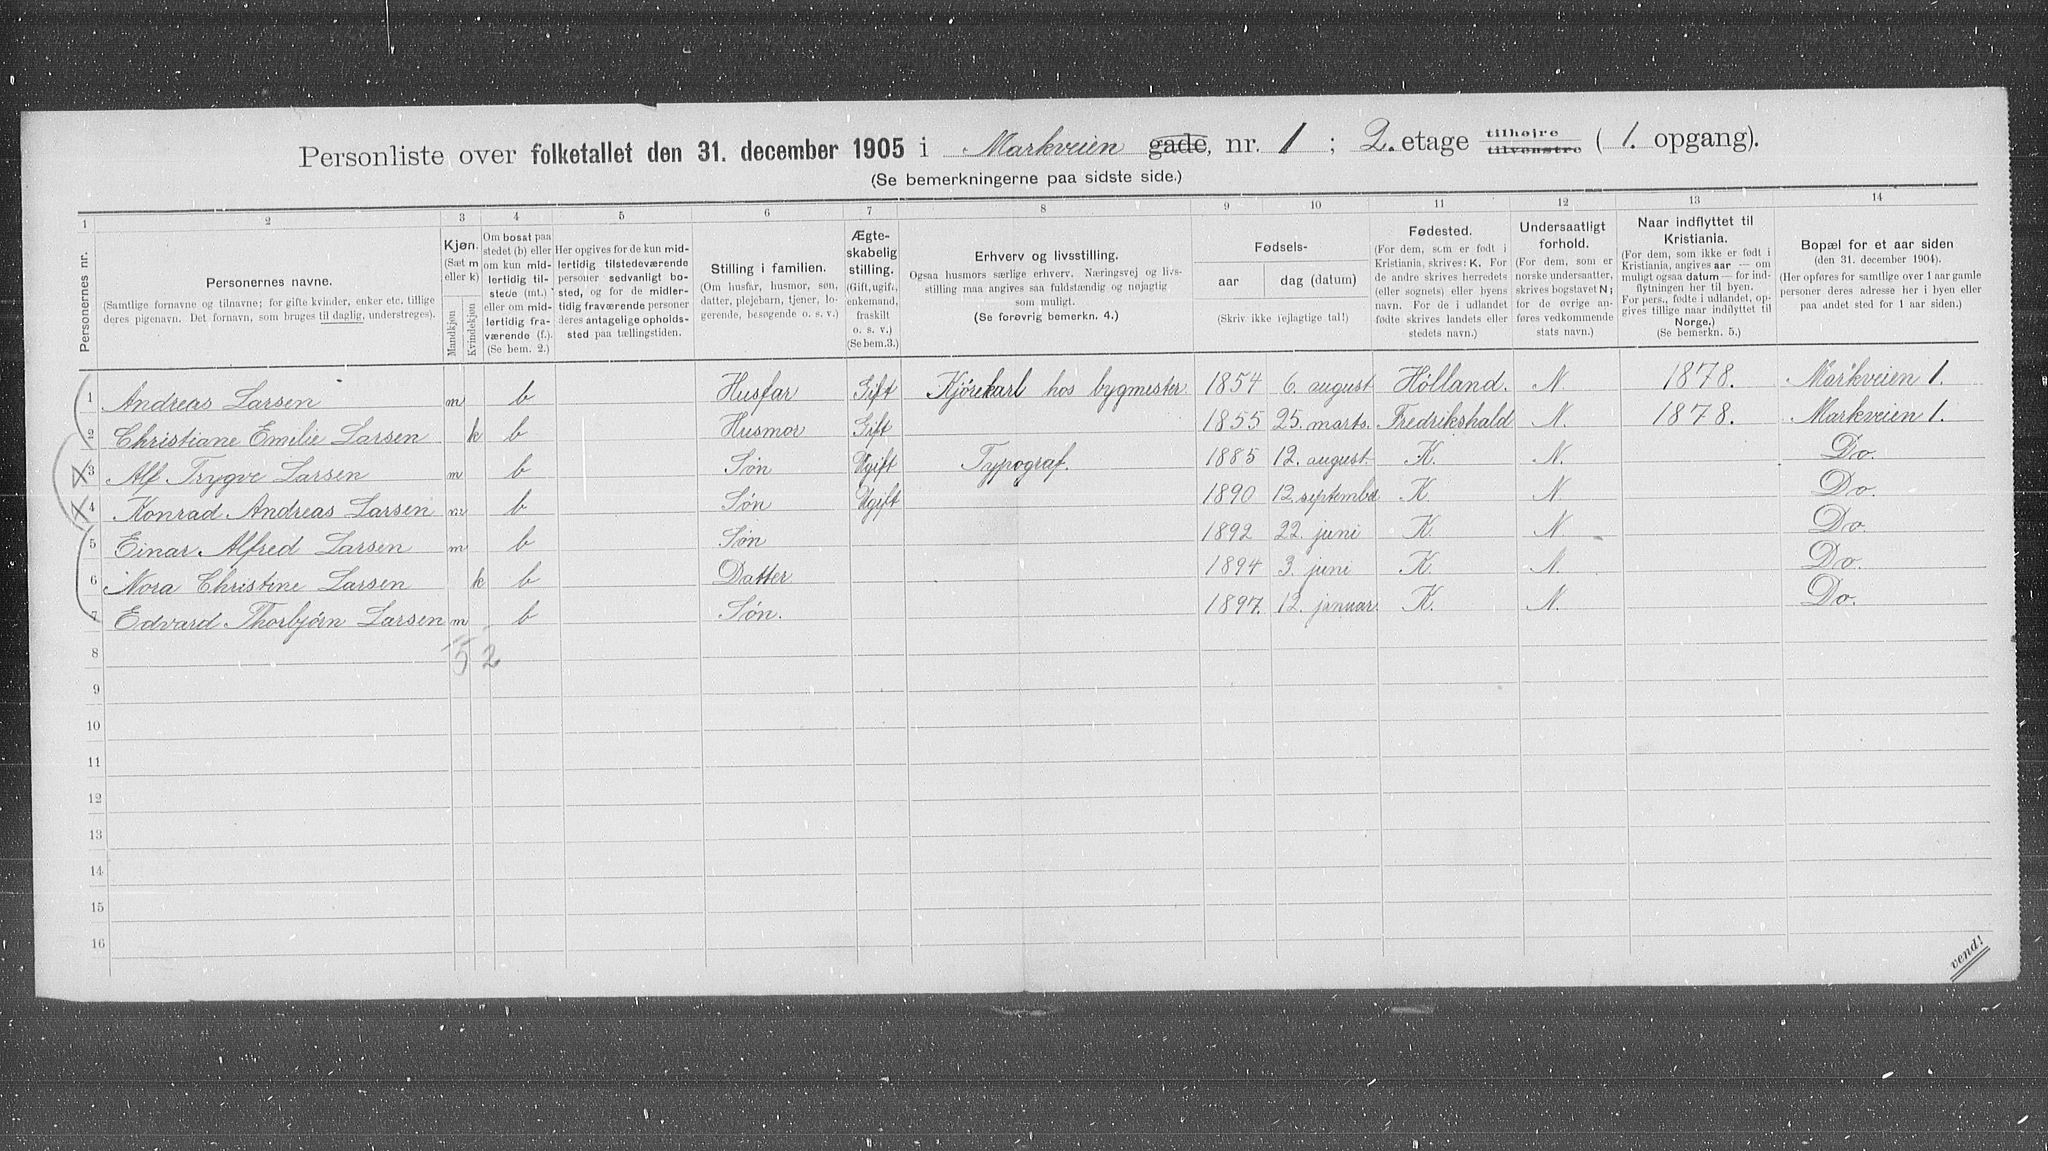 Personliste over folketallet den 31. december 1905 i Markveien gade, nr. 1 ; 2. etage tilhøjre tilvenstre ( 1. opgang).
(Se bemerkningerne paa sidste side.)
1 2 3 4 5 6 7 8 9 10 11 12 13 14
Personernes nr.
Personernes navne.
(Samtlige fornavne og tilnavne; for gifte kvinder, enker etc. tillige
deres pigenavn. Det fornavn, som bruges til daglig, understreges).
Kjøn.
(Sæt m
eller k)
Mandkjøn
Kvindekjøn
Om bosat paa
stedet (b) eller
om kun mid-
lertidig til-
stede (mt.)
eller om mid-
lertidig fra-
værende (f.).
(Se bem. 2.)
Her opgives for de kun mid-
lertidig tilstedeværende
personer sedvanligt bo-
sted, og for de midler-
tidig fraværende personer
deres antagelige opholds-
sted paa tællingstiden.
Stilling i familien.
(Om husfar, husmor, søn,
datter, plejebarn, tjener, lo-
gerende, besøgende o. s. v.)
Ægte-
skabelig
stilling.
(Gift, ugift,
enkemand,
fraskilt
o. s. v.)
(Se bem.3.)
Erhverv og livsstilling.
Ogsaa husmors særlige erhverv. Næringsvej og livs-
stilling maa angives saa fuldstændig og nøjagtig
som muligt.
(Se forøvrig bemerkn. 4.)
Fødsels-
aar dag (datum)
(Skriv ikke iejlagtige tal!)
Fødested.
(For dem, som er født i
Kristiania, skrives: K. For
de andre skrives herredets
(eller sognets) eller byens
navn. For de i udlandet
fødte skrives landets eller
stedets navn.)
Undersaatligt
forhold.
(For dem, som er
norske undersaatter,
skrives bogstavet N;
for de øvrige an-
føres vedkommende
stats navn.)
Naar indflyttet til
Kristiania.
(For dem, som ikke er født i
Kristiania, angives aar — om
muligt ogsaa datum — for ind-
flytningen her til byen.
For pers., fødte i udlandet, op-
gives tillige naar indflyttet til
Norge.)
(Se bemerkn. 5.)
Bopæl for et aar siden
(den 31. december 1904).
(Her opføres for samtlige over 1 aar gamle
personer deres adresse her i byen eller
paa andet sted for 1 aar siden.)
1 Andreas Larsen m b Husfar Gift Kjørekarl hos bygmester. 1854 6. august Hølland. N. 1878. Markveien 1.
2 Christiane Emilie Larsen k b Husmor Gift 1855 25. marts. Fredrikshald N. 1878. Markveien 1.
3 Alf Trygve Larsen m b Søn Ugift Typograf. 1885 12. august. K. N. Do.
4 Konrad Andreas Larsen m b Søn Ugift 1890 12. septembe K. N. Do.
5 Einar Alfred Larsen m b Søn 1892 22. juni K. N. Do.
6 Nora Christine Larsen k b Datter 1894 3. juni K. N. Do.
7 Edvard Thorbjørn Larsen m b Søn. 1897. 12. januar. K. N. Do.
5 2
8
9
10
11
12
13
14
15
16
vend!